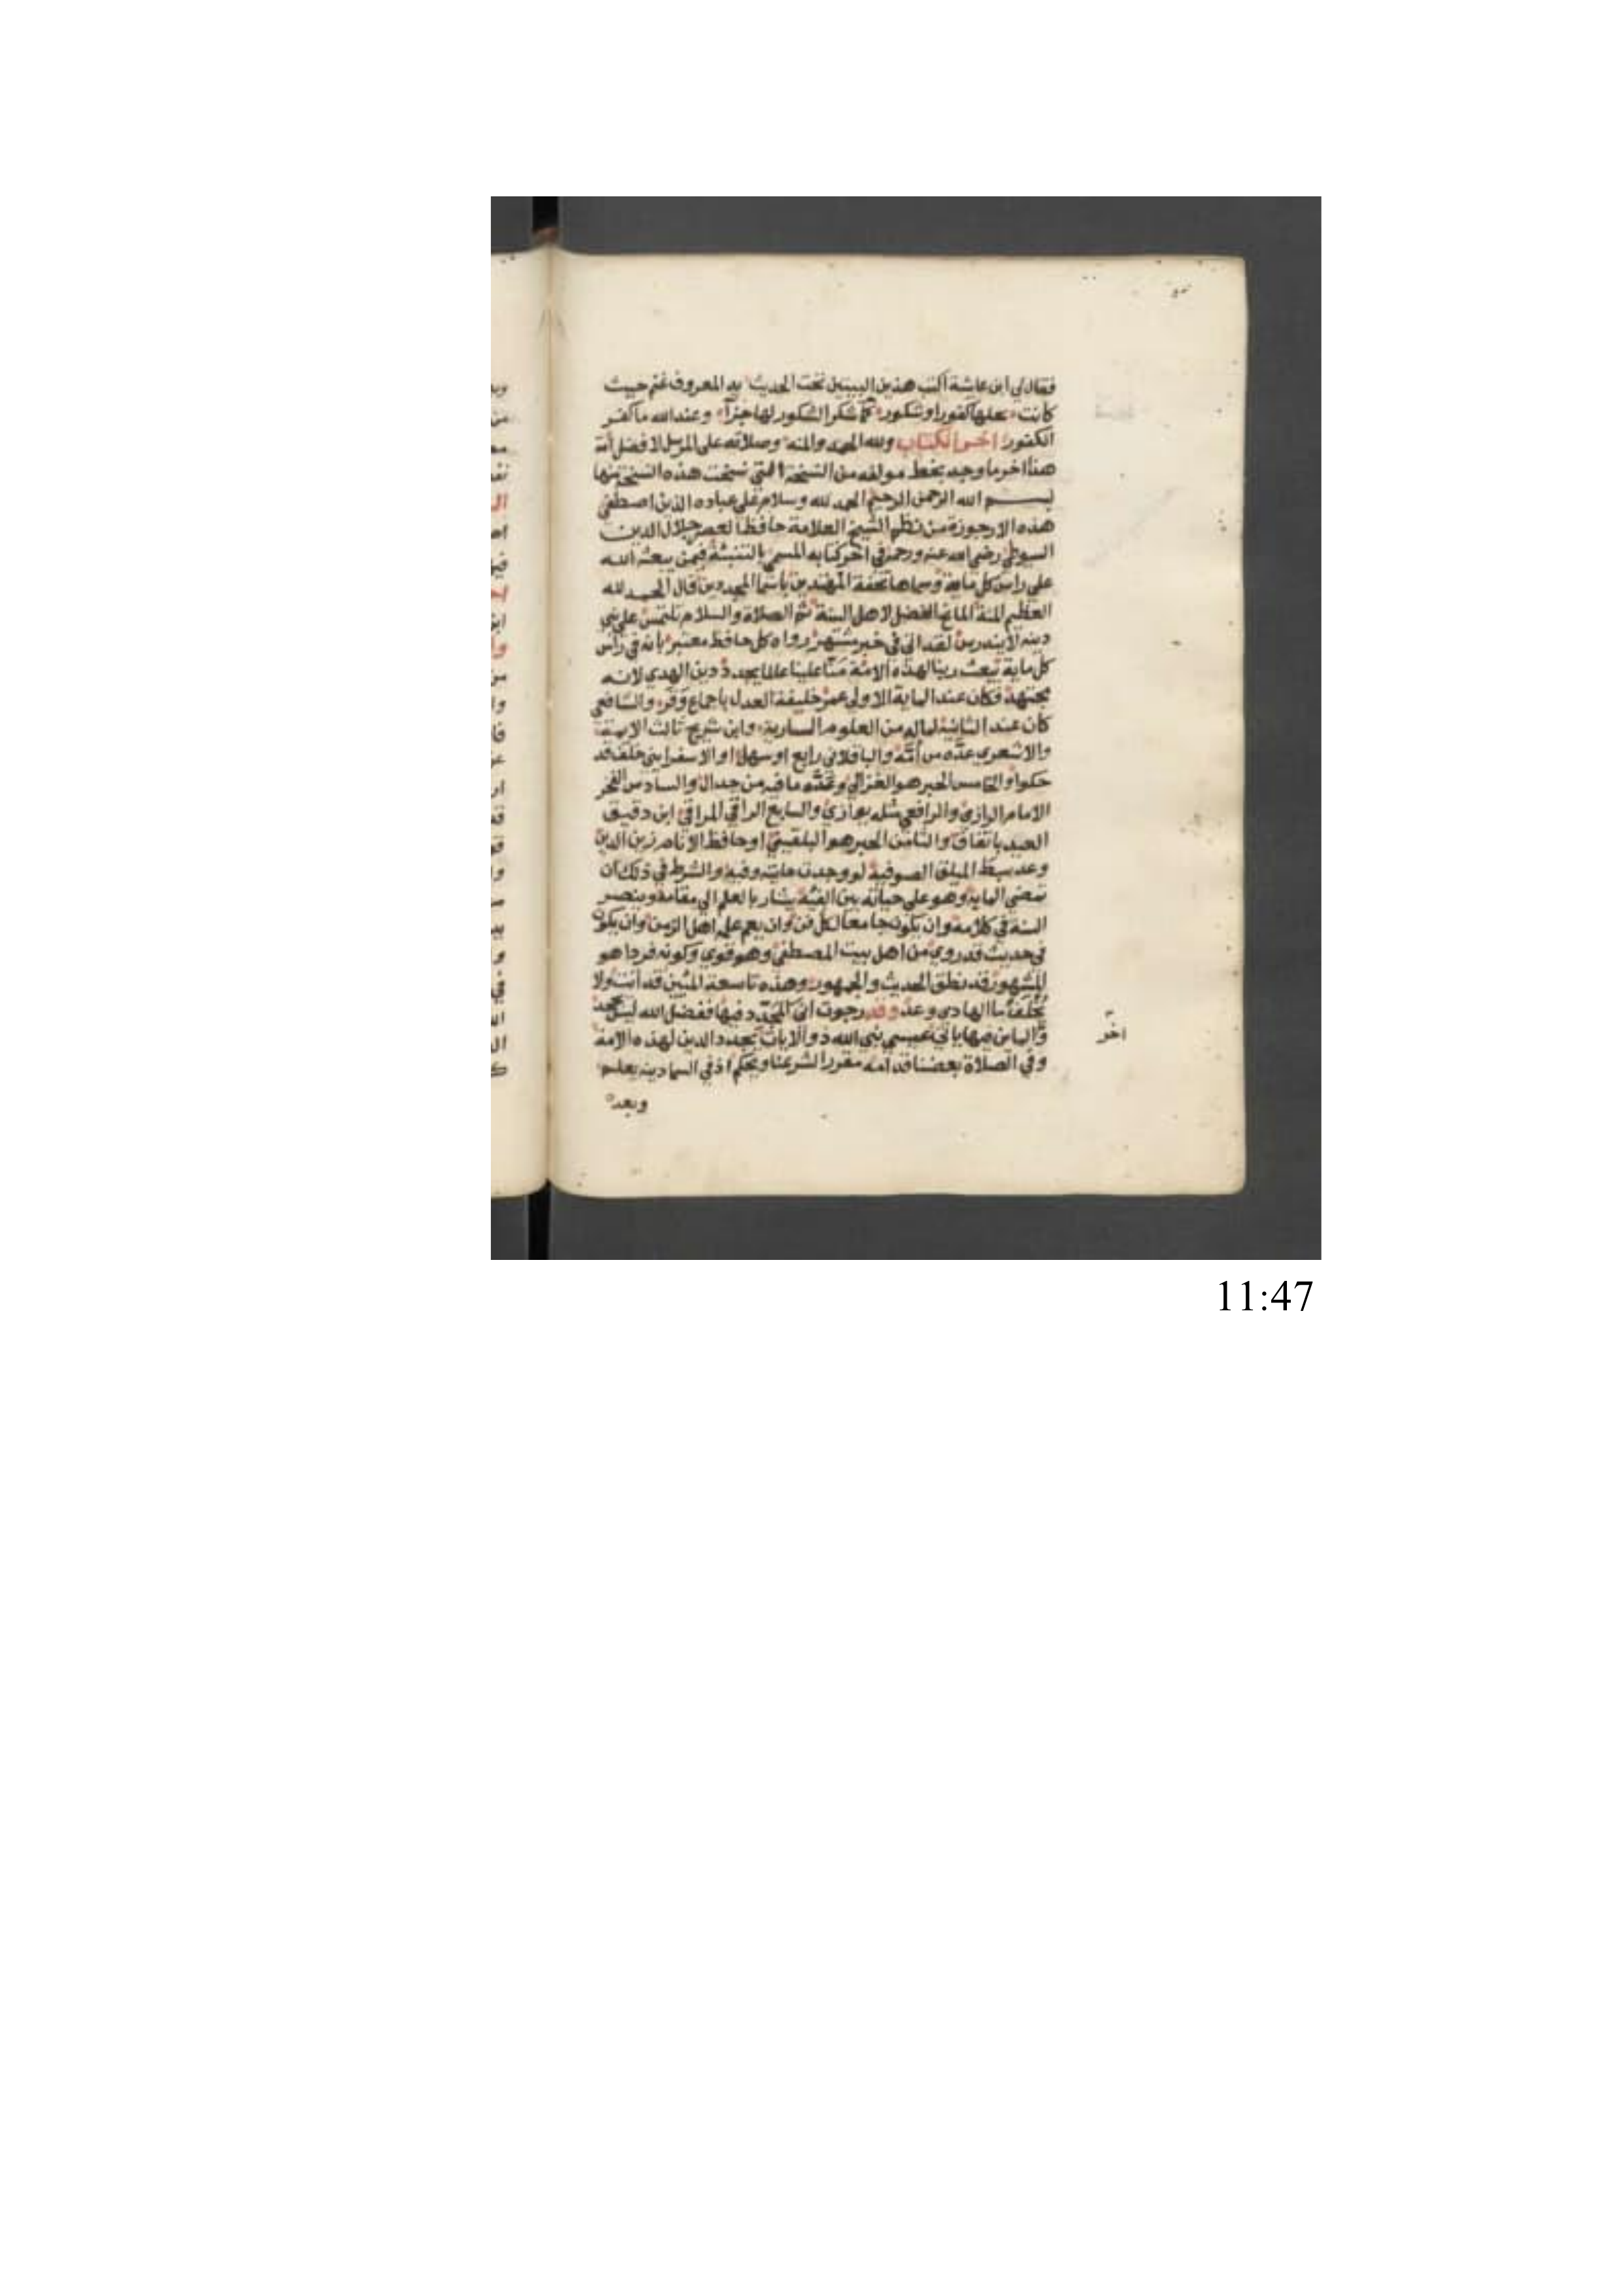 فقال لي ابن عائشة اكتب هذين البيتين تحت الحديث يد المعروف غنم حيث
كانت تحملها كفور او شكور كما شكر الشكور لها جزا وعند الله ما كفر
الكفور اخر الكتاب ولله الحمد والمنه وصلاته على المرسل لافضل امة
هذا اخر ما وجد بخط مولفه من النسخة التي نسخت هذه النسخة منها
بسم الله الرحمن الرحيم الحمد لله وسلام على عباده الذين اصطفى
هذه الارجوزة من نظم الشيخ العلامة حافظ العصر جلال الدين
السيوطي رضي الله عنه ورحمه في اخر كتابه المسمى بالتنبئة فيمن يبعثه الله
على راس كل ماية وسماها تحفة المهتدين باسما المجددين قال الحمد لله
العظيم المنة المانح الفضل لاهل السنة ثم الصلاة والسلام تلتمس على نبي
دينه لا يندرس لقد اتى في خبر مشتهر رواه كل حافظ معتبر بانه في راس
كل ماية يبعث ربنا لهذه الامة منا علينا عالما يجدد دين الهدي لانه
مجتهد فكان عند الماية الاولى عمر خليفة العدل باجماع وقر والشافعي
كان عند الثانية لما له من العلوم السارية وابن شريح ثالث الايمة
والاشعري عده من امه والباقلاني رابع او سهل او الاسفرايني خلف قد
حكوا والخامس الحبر هو الغزالي وعده ما فيه من جدال والسادس الفخر
الامام الرازي والرافعي مثله يوازي والسابع الراقي المراقي ابن دقيق
العيد باتفاق والثامن الحبر هو البلقيني او حافظ الانام زين الدين
وعد سبط الميلق الصوفية لو وجدت مايته وفيه والشرط في ذلك ان
تمضي الماية وهو على حياته بين الفية يشار بالعلم الى مقامه وينصر
السنة في كلامه وان يكون جامعا لكل فن وان يعم علمه اهل الزمن وان يكون
في حديث قد روي من اهل بيت المصطفى وهو قوي وكونه فردا هو
المشهور قد نطق الحديث والجمهور وهذه تاسعة المئين قد اتت ولا
يخلف ما الهادي وعد وقد رجوت انني المجدد فيها ففضل الله ليس يجحد
واخر المايين فيها ياتي عيسى نبي الله ذو الايات يجدد الدين لهذه الامه
وفي الصلاة بعضنا قد امه مقررا لشرعنا ويحكم اذ في السما دينه يعلم
وبعد
11:47